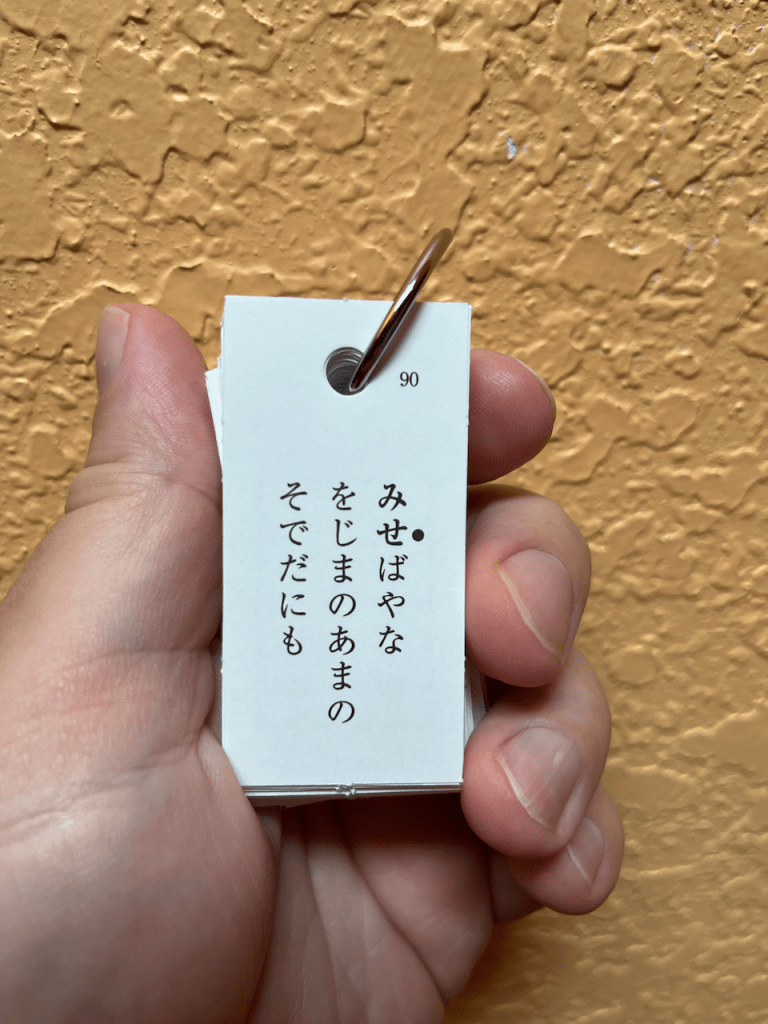 90
みせばやな
をじまのあまの
そでだにも